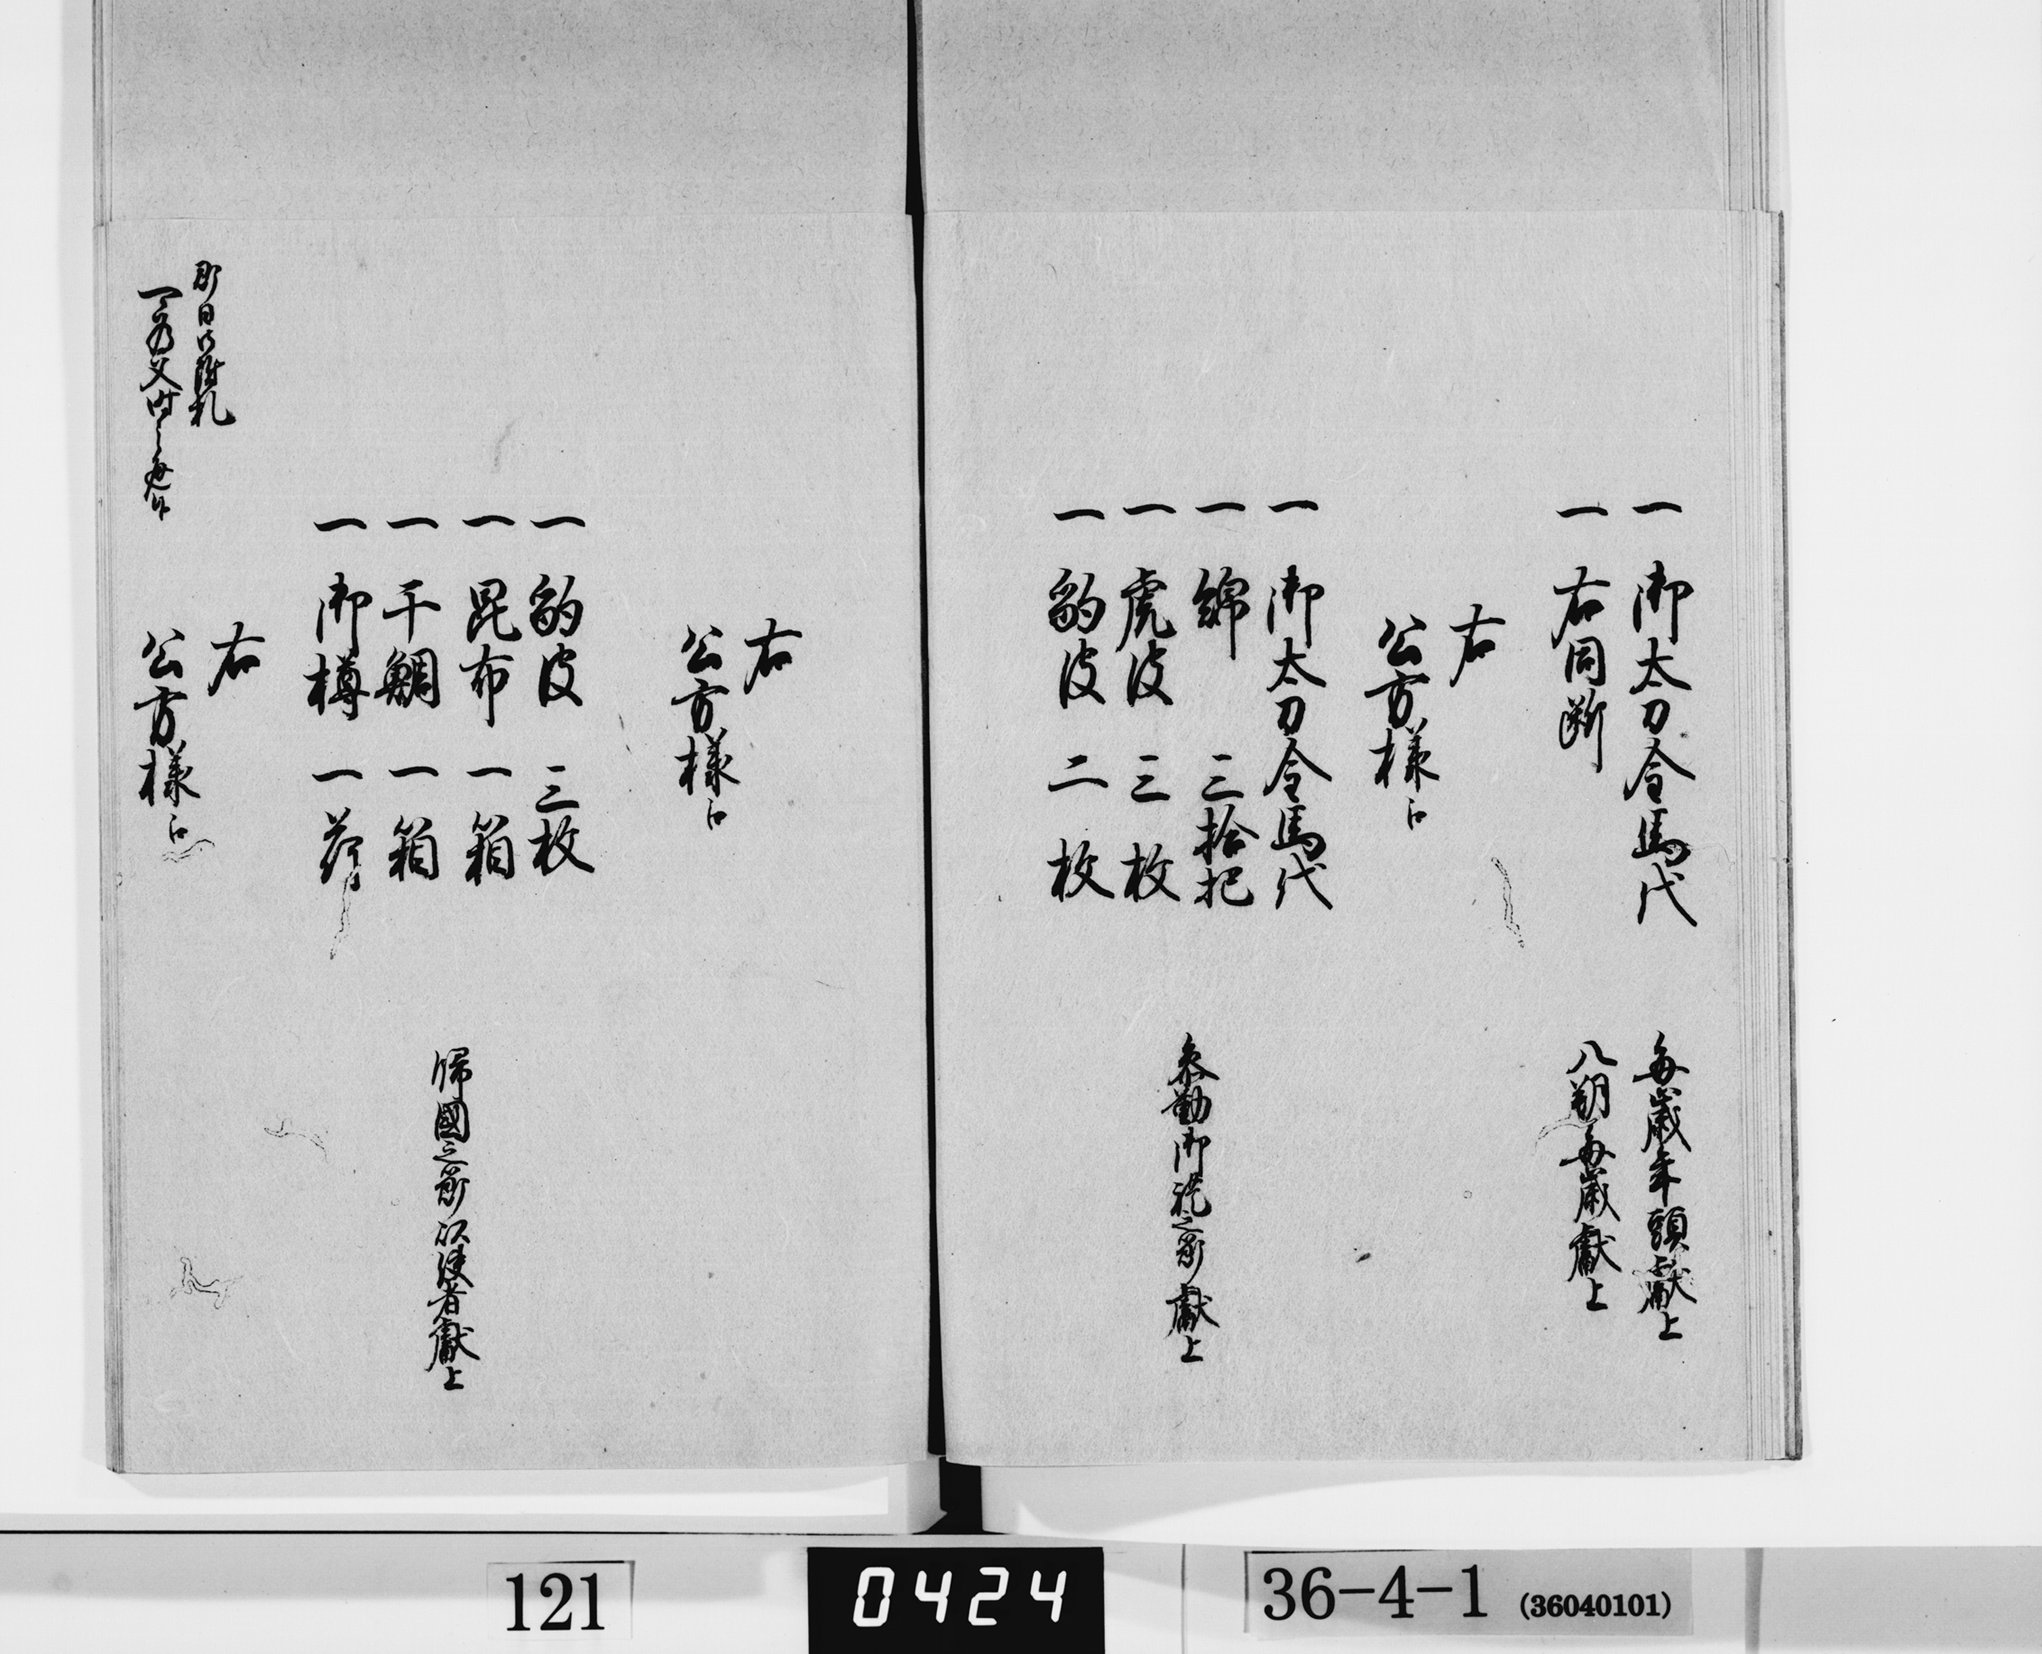 一 御太刀金馬代 毎歳年頭献上
一 右同断 八朔毎歳献上
右
公方様江
一 御太刀金馬代
一 綿 三拾把
一 虎皮 三枚 参勤御礼之節献上
一 豹皮 二枚
右
公方様江
一 豹皮 三枚
一 昆布 一箱
一 干鯛 一箱 帰國之節以使者献上
一 御樽 一荷
右
公方様江
附札
121
0424
36-4-1 (36040101)